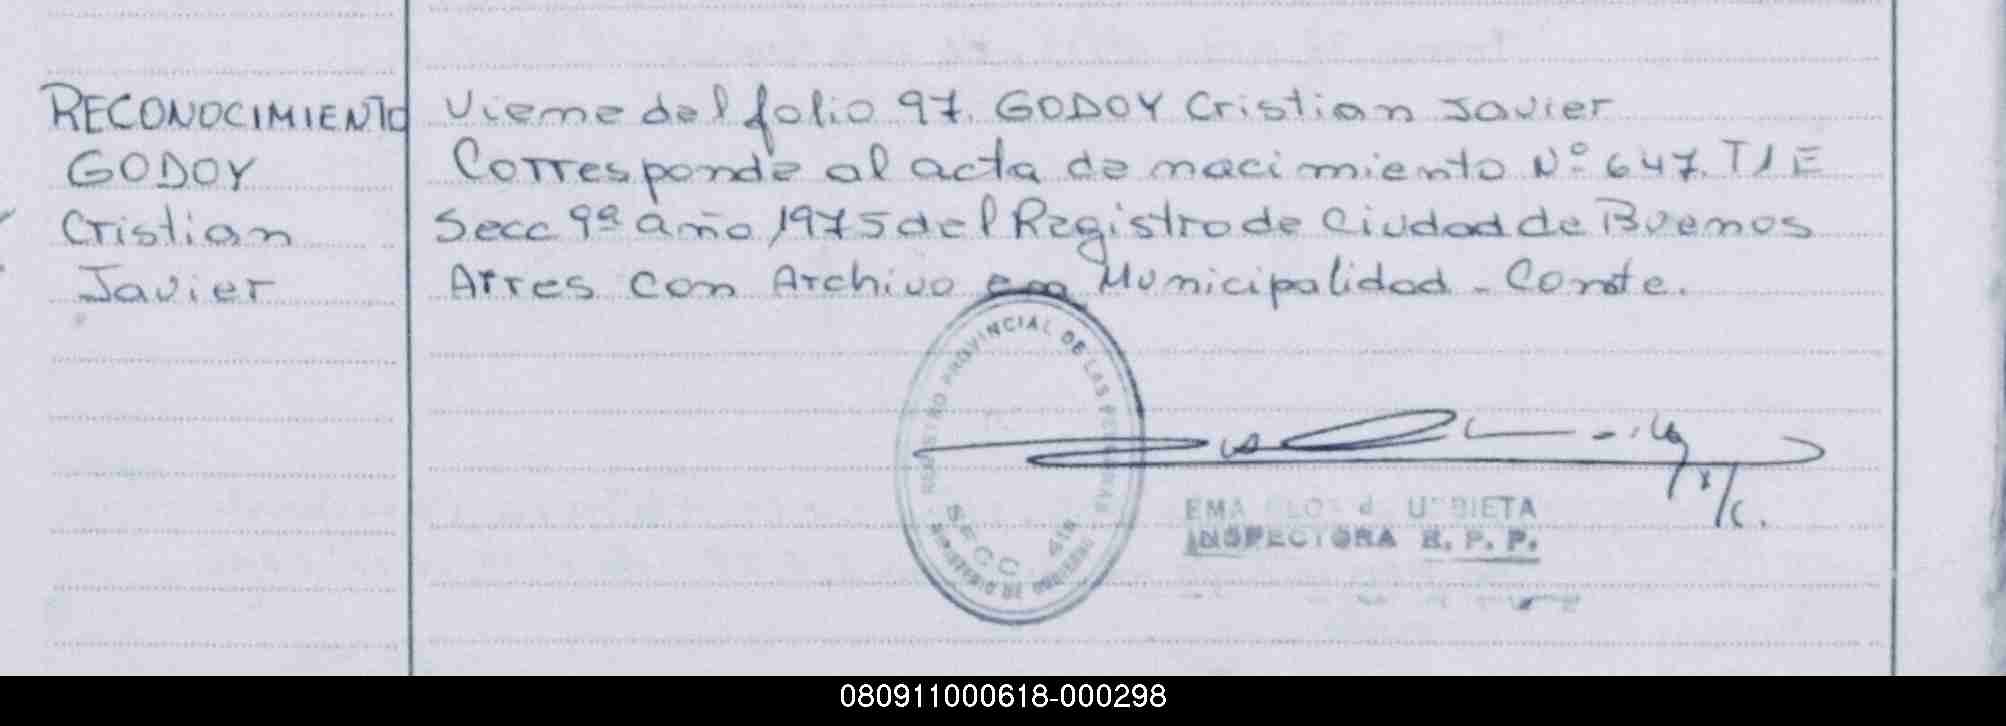 RECONOCIMIENTO
GODOY
Cristian
Javier
Viene del folio 97. GODOY Cristian Javier
Corresponde al acta de nacimiento Nº 647. T1E
Secc 9ª año 1975 del Registro de Ciudad de Buenos
Aires con Archivo en Municipalidad - Conste.
REGISTRO PROVINCIAL DE LAS PERSONAS
SECC
MINISTERIO DE GOBIERNO
EMA
INSPECTORA R. P. P.
080911000618-000298